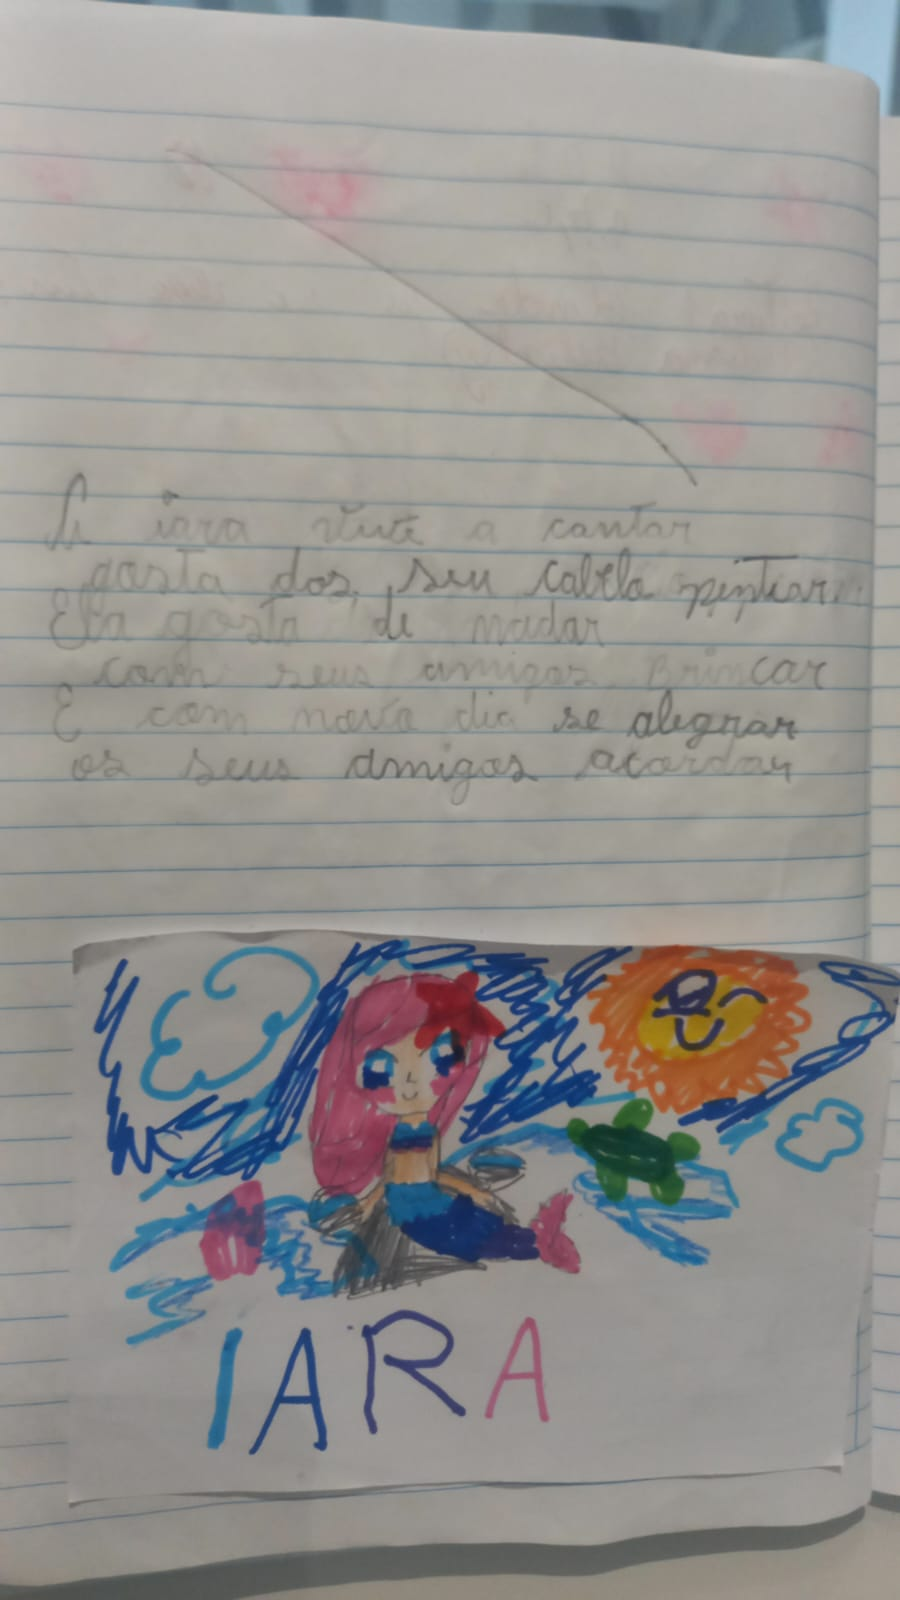 A iara vive a cantar
gosta dos seu cabelo pentiar.
Ela gosta de nadar
com seus amigos Brincar
E com novo dia se alegrar
os seus amigos acordar
IARA